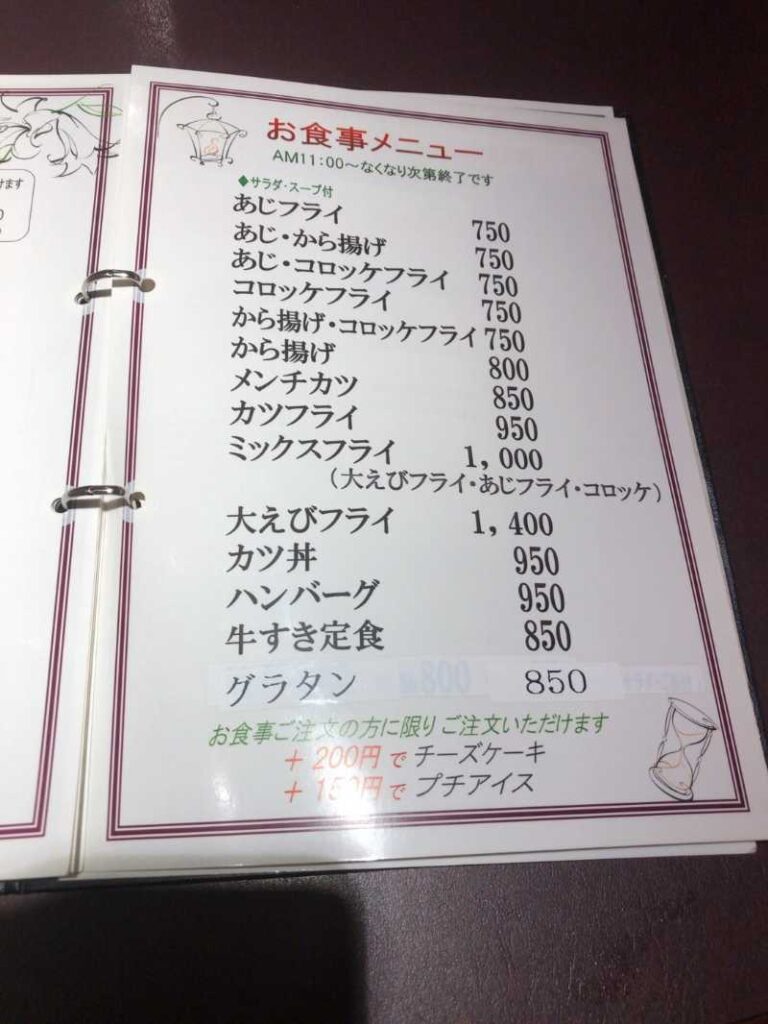 けます
お食事メニュー
AM11:00～なくなり次第終了です
◆サラダ・スープ付
あじフライ 750
あじ・から揚げ 750
あじ・コロッケフライ 750
コロッケフライ 750
から揚げ・コロッケフライ 750
から揚げ 800
メンチカツ 850
カツフライ 950
ミックスフライ 1,000
(大えびフライ・あじフライ・コロッケ)
大えびフライ 1,400
カツ丼 950
ハンバーグ 950
牛すき定食 850
グラタン 850
お食事ご注文の方に限りご注文いただけます
+200円で チーズケーキ
+150円で プチアイス